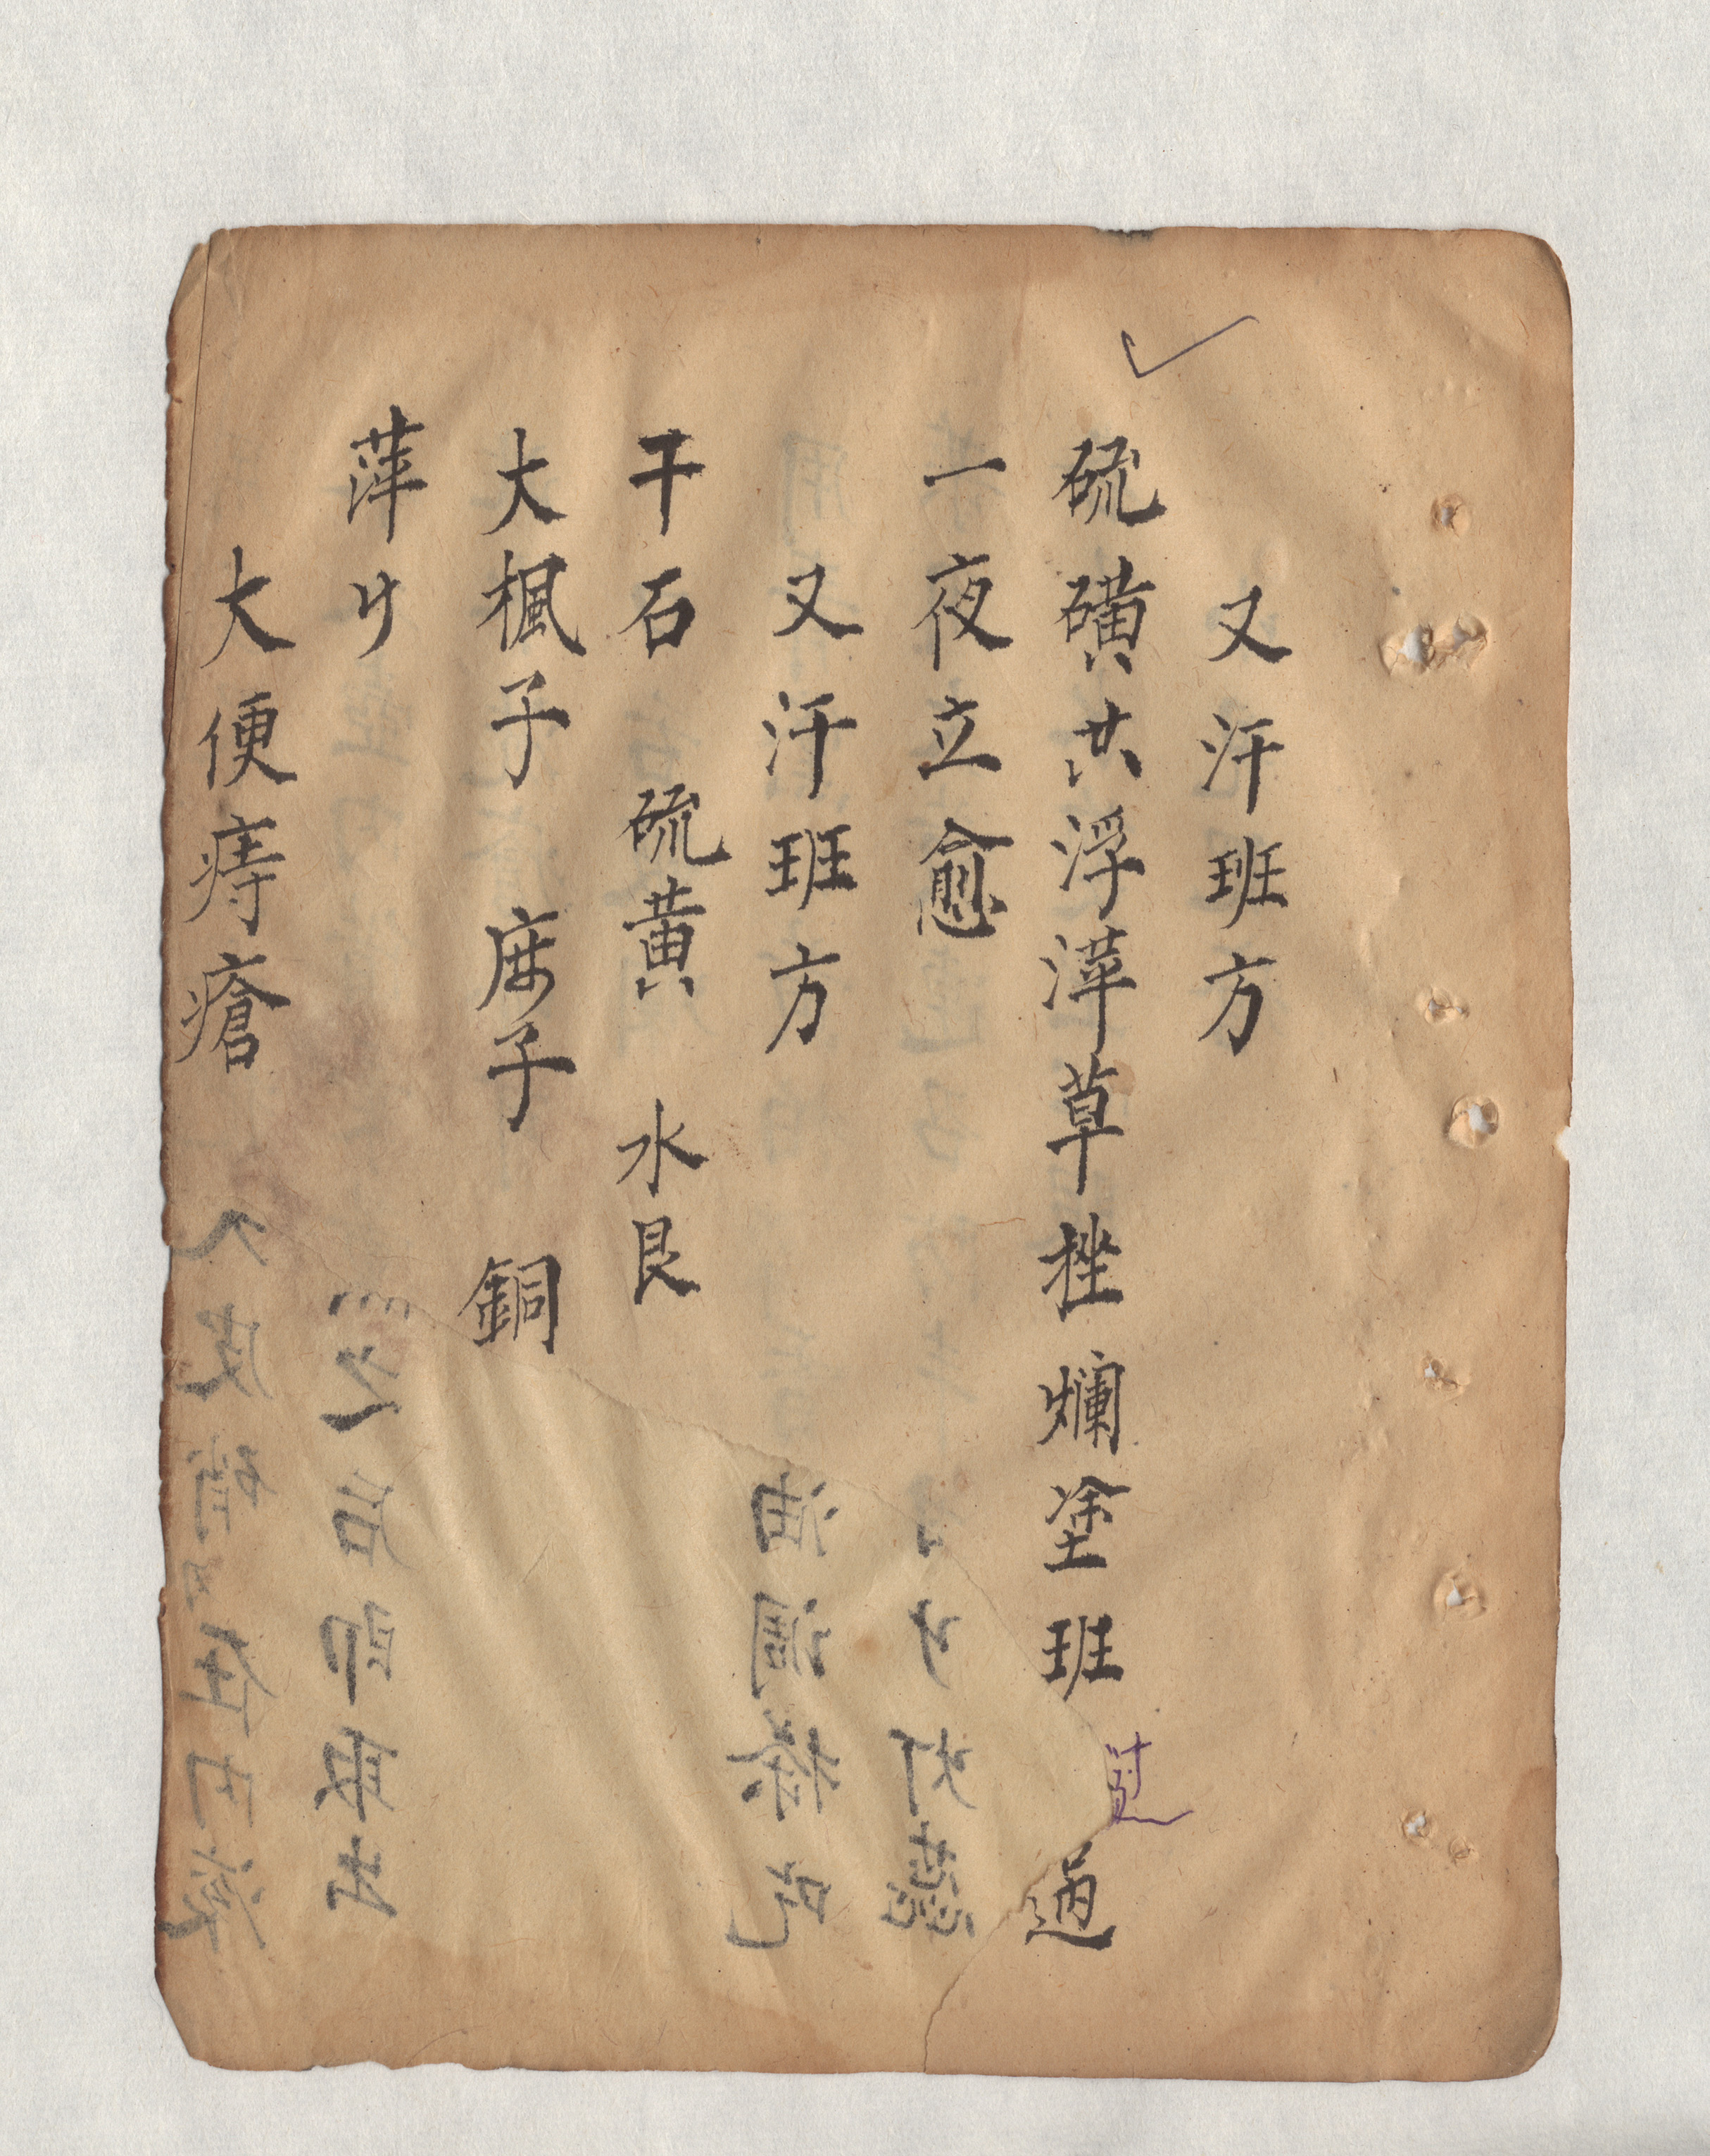 又汗班方
硫磺共浮萍草挫爛塗班過
过
一夜立愈
又汗班方
干石 硫黃 水艮
大楓子 庅子 銅
萍
大便痔瘡